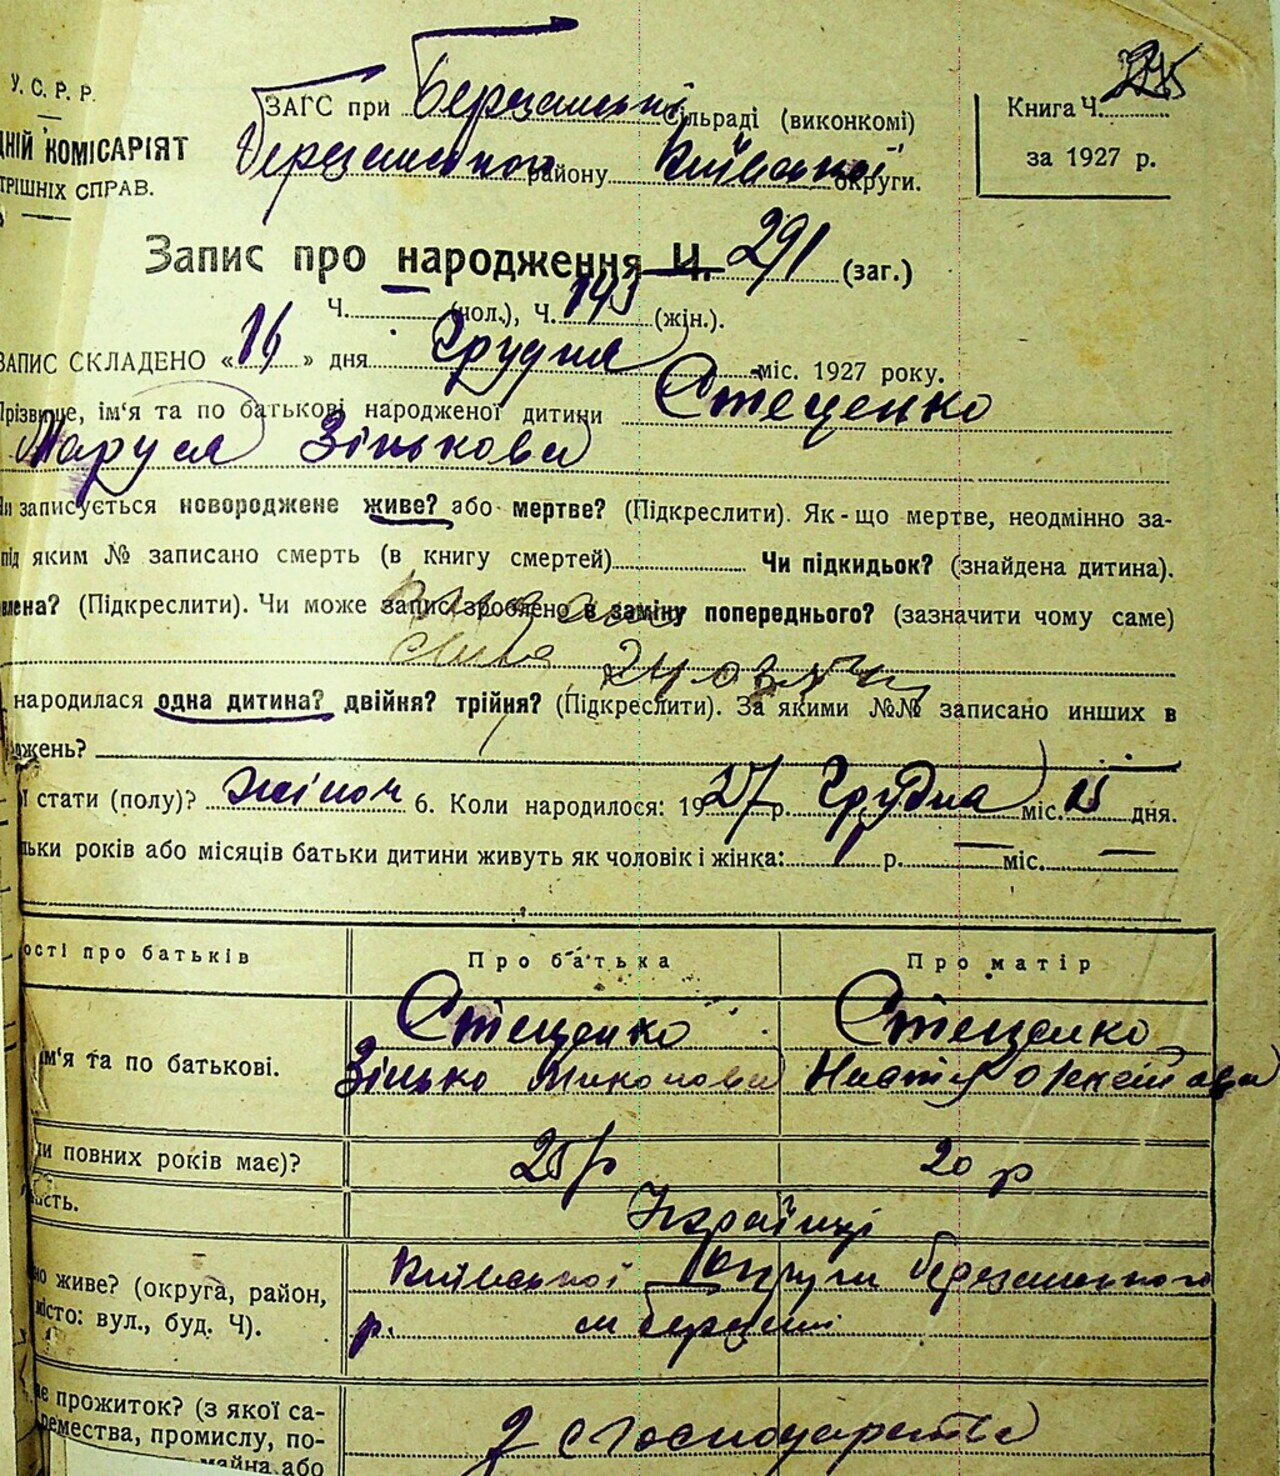 У. С. Р. Р.
ДНІЙ КОМІСАРІЯТ
ТРІШНІХ СПРАВ.
ЗАГС при Березанській сільраді (виконкомі)
Березанського району Київської округи.
Книга Ч.
за 1927 р.
Запис про народження Ч. 291 (заг.)
Ч. (чол.), Ч. 143 (жін.).
ЗАПИС СКЛАДЕНО «16» дня Грудня міс. 1927 року.
Прізвище, ім'я та по батькові народженої дитини Стеценко
Маруся Зінькова
Чи записується новороджене живе? або мертве? (Підкреслити). Як-що мертве, неодмінно за-
під яким № записано смерть (в книгу смертей) Чи підкидьок? (знайдена дитина).
влена? (Підкреслити). Чи може запис зроблено в заміну попереднього? (зазначити чому саме)
народилася одна дитина? двійня? трійня? (Підкреслити). За якими №№ записано инших в
джень?
ї стати (полу)? жіноч 6. Коли народилося: 1927 р. Грудня міс. 15 дня.
льки років або місяців батьки дитини живуть як чоловік і жінка: 1 р. — міс. —
ості про батьків Про батька Про матір
Стеценко Стеценко
ім'я та по батькові. Зінько Миколович Настя
ки повних років має)? 25 р 20 р
ність. Українці
но живе? (округа, район, Київської Округи Березанського
місто: вул., буд. Ч). р. м Березані
ає прожиток? (з якої са- З с господарства
ремества, промислу, по-
майна або